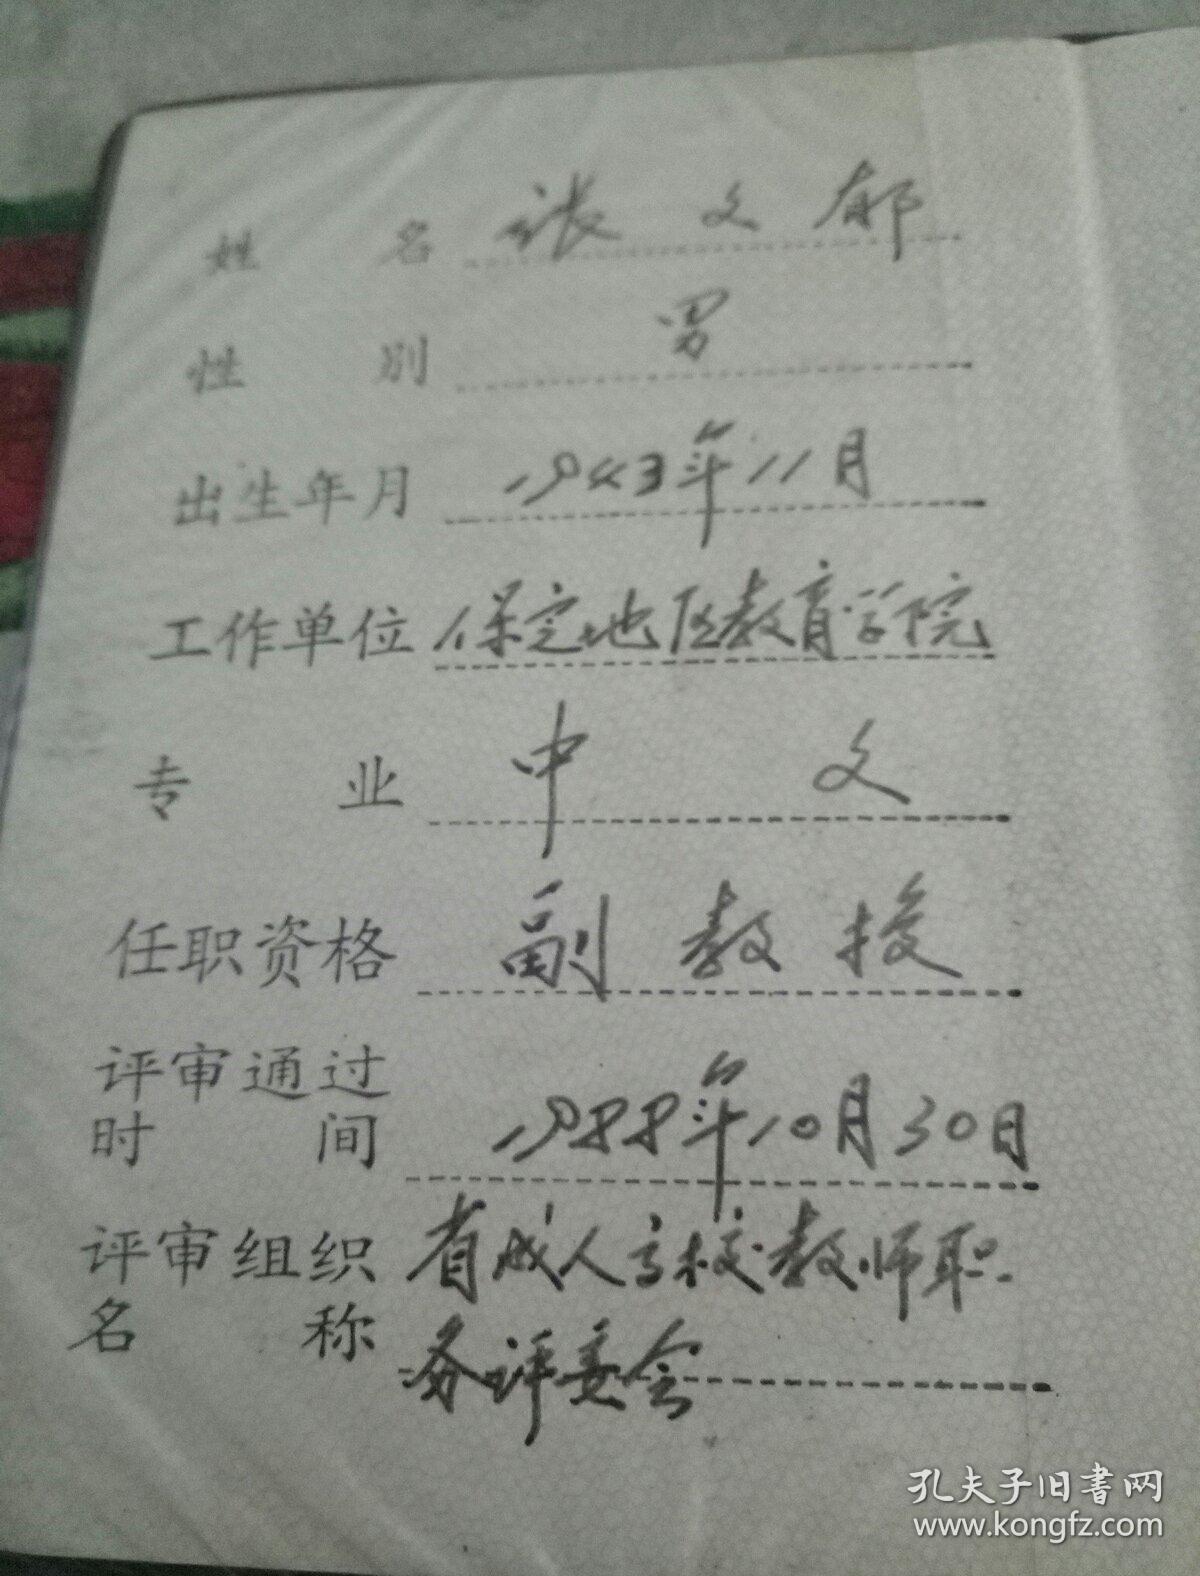 姓名 张文郁
性别 男
出生年月 1943年11月
工作单位 保定地区教育学院
专业 中文
任职资格 副教授
评审通过
时间 1988年10月30日
评审组织 省成人高校教师职
名称 务评委会
孔夫子旧书网
www.kongfz.com